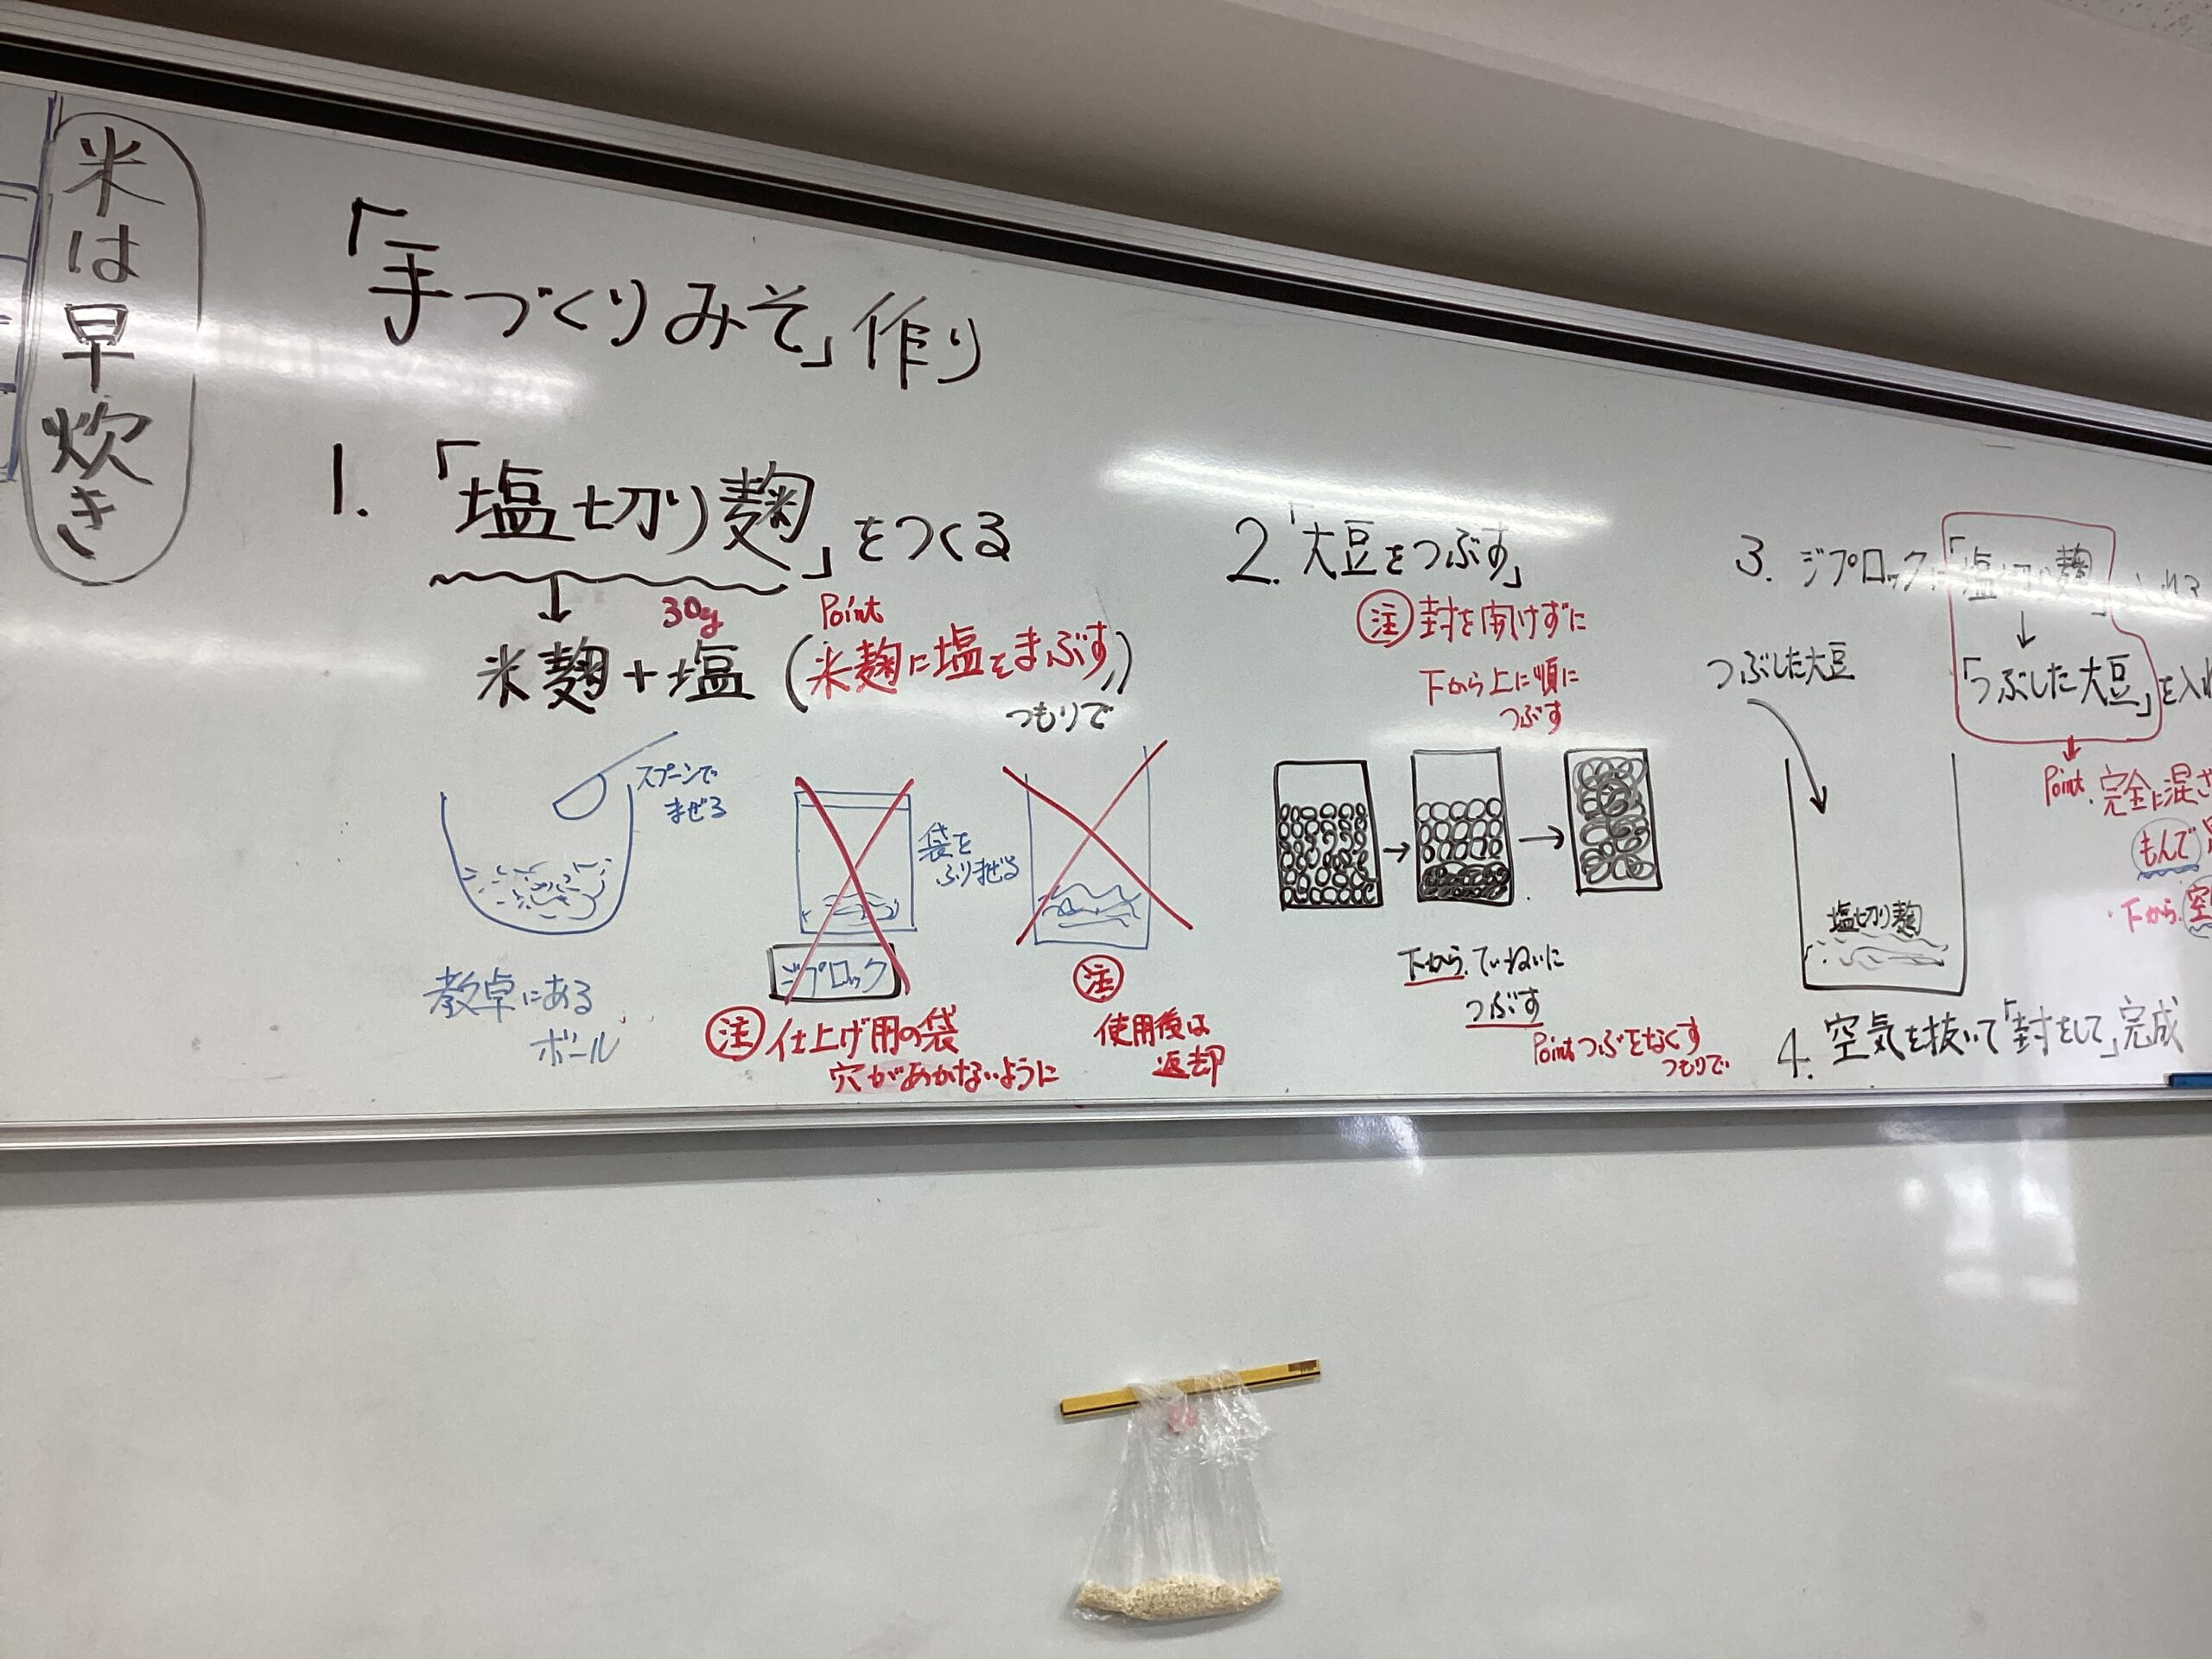 米は早炊き
「手づくりみそ」作り
1.「塩切り麹」をつくる
30g
Point
米麹+塩(米麹に塩をまぶす)
つもりで
スプーンで
まぜる
教卓にある
ボール
袋を
ふりまぜる
ジプロック
注 仕上げ用の袋
穴があかないように
注
使用後は
返却
2.「大豆をつぶす」
注 封を開けずに
下から上に順に
つぶす
下から ていねいに
つぶす
Point つぶをなくす
つもりで
3. ジプロックに「塩切り麹」入れる
「つぶした大豆」を入れ
つぶした大豆
塩切り麹
Point. 完全に混ざ
もんで
・下から 空
4. 空気を抜いて「封をして」完成